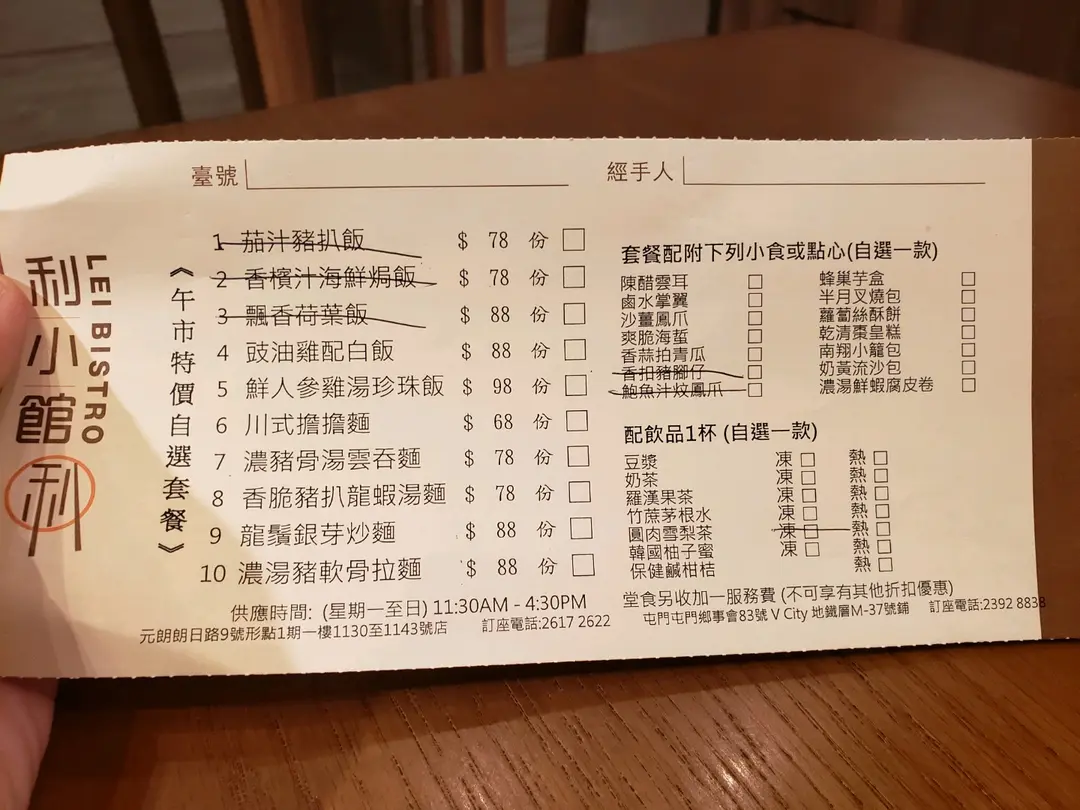 臺號
經手人
利小館
LEI BISTRO
利
《午市特價自選套餐》
1 茄汁豬扒飯 $ 78 份
2 香檳汁海鮮焗飯 $ 78 份
3 飄香荷葉飯 $ 88 份
4 豉油雞配白飯 $ 88 份
5 鮮人參雞湯珍珠飯 $ 98 份
6 川式擔擔麵 $ 68 份
7 濃豬骨湯雲吞麵 $ 78 份
8 香脆豬扒龍蝦湯麵 $ 78 份
9 龍鬚銀芽炒麵 $ 88 份
10 濃湯豬軟骨拉麵 $ 88 份
供應時間: (星期一至日) 11:30AM - 4:30PM
元朗朗日路9號形點1期一樓1130至1143號店 訂座電話:2617 2622
套餐配附下列小食或點心(自選一款)
陳醋雲耳
鹵水掌翼
沙薑鳳爪
爽脆海蜇
香蒜拍青瓜
香扣豬腳仔
鮑魚汁炆鳳爪
蜂巢芋盒
半月叉燒包
蘿蔔絲酥餅
乾清棗皇糕
南翔小籠包
奶黃流沙包
濃湯鮮蝦腐皮卷
配飲品1杯 (自選一款)
豆漿 凍 熱
奶茶 凍 熱
羅漢果茶 凍 熱
竹蔗茅根水 凍 熱
圓肉雪梨茶 凍 熱
韓國柚子蜜 凍 熱
保健鹹柑桔 熱
堂食另收加一服務費 (不可享有其他折扣優惠)
屯門屯門鄉事會83號 V City 地鐵層M-37號鋪 訂座電話:2392 8838